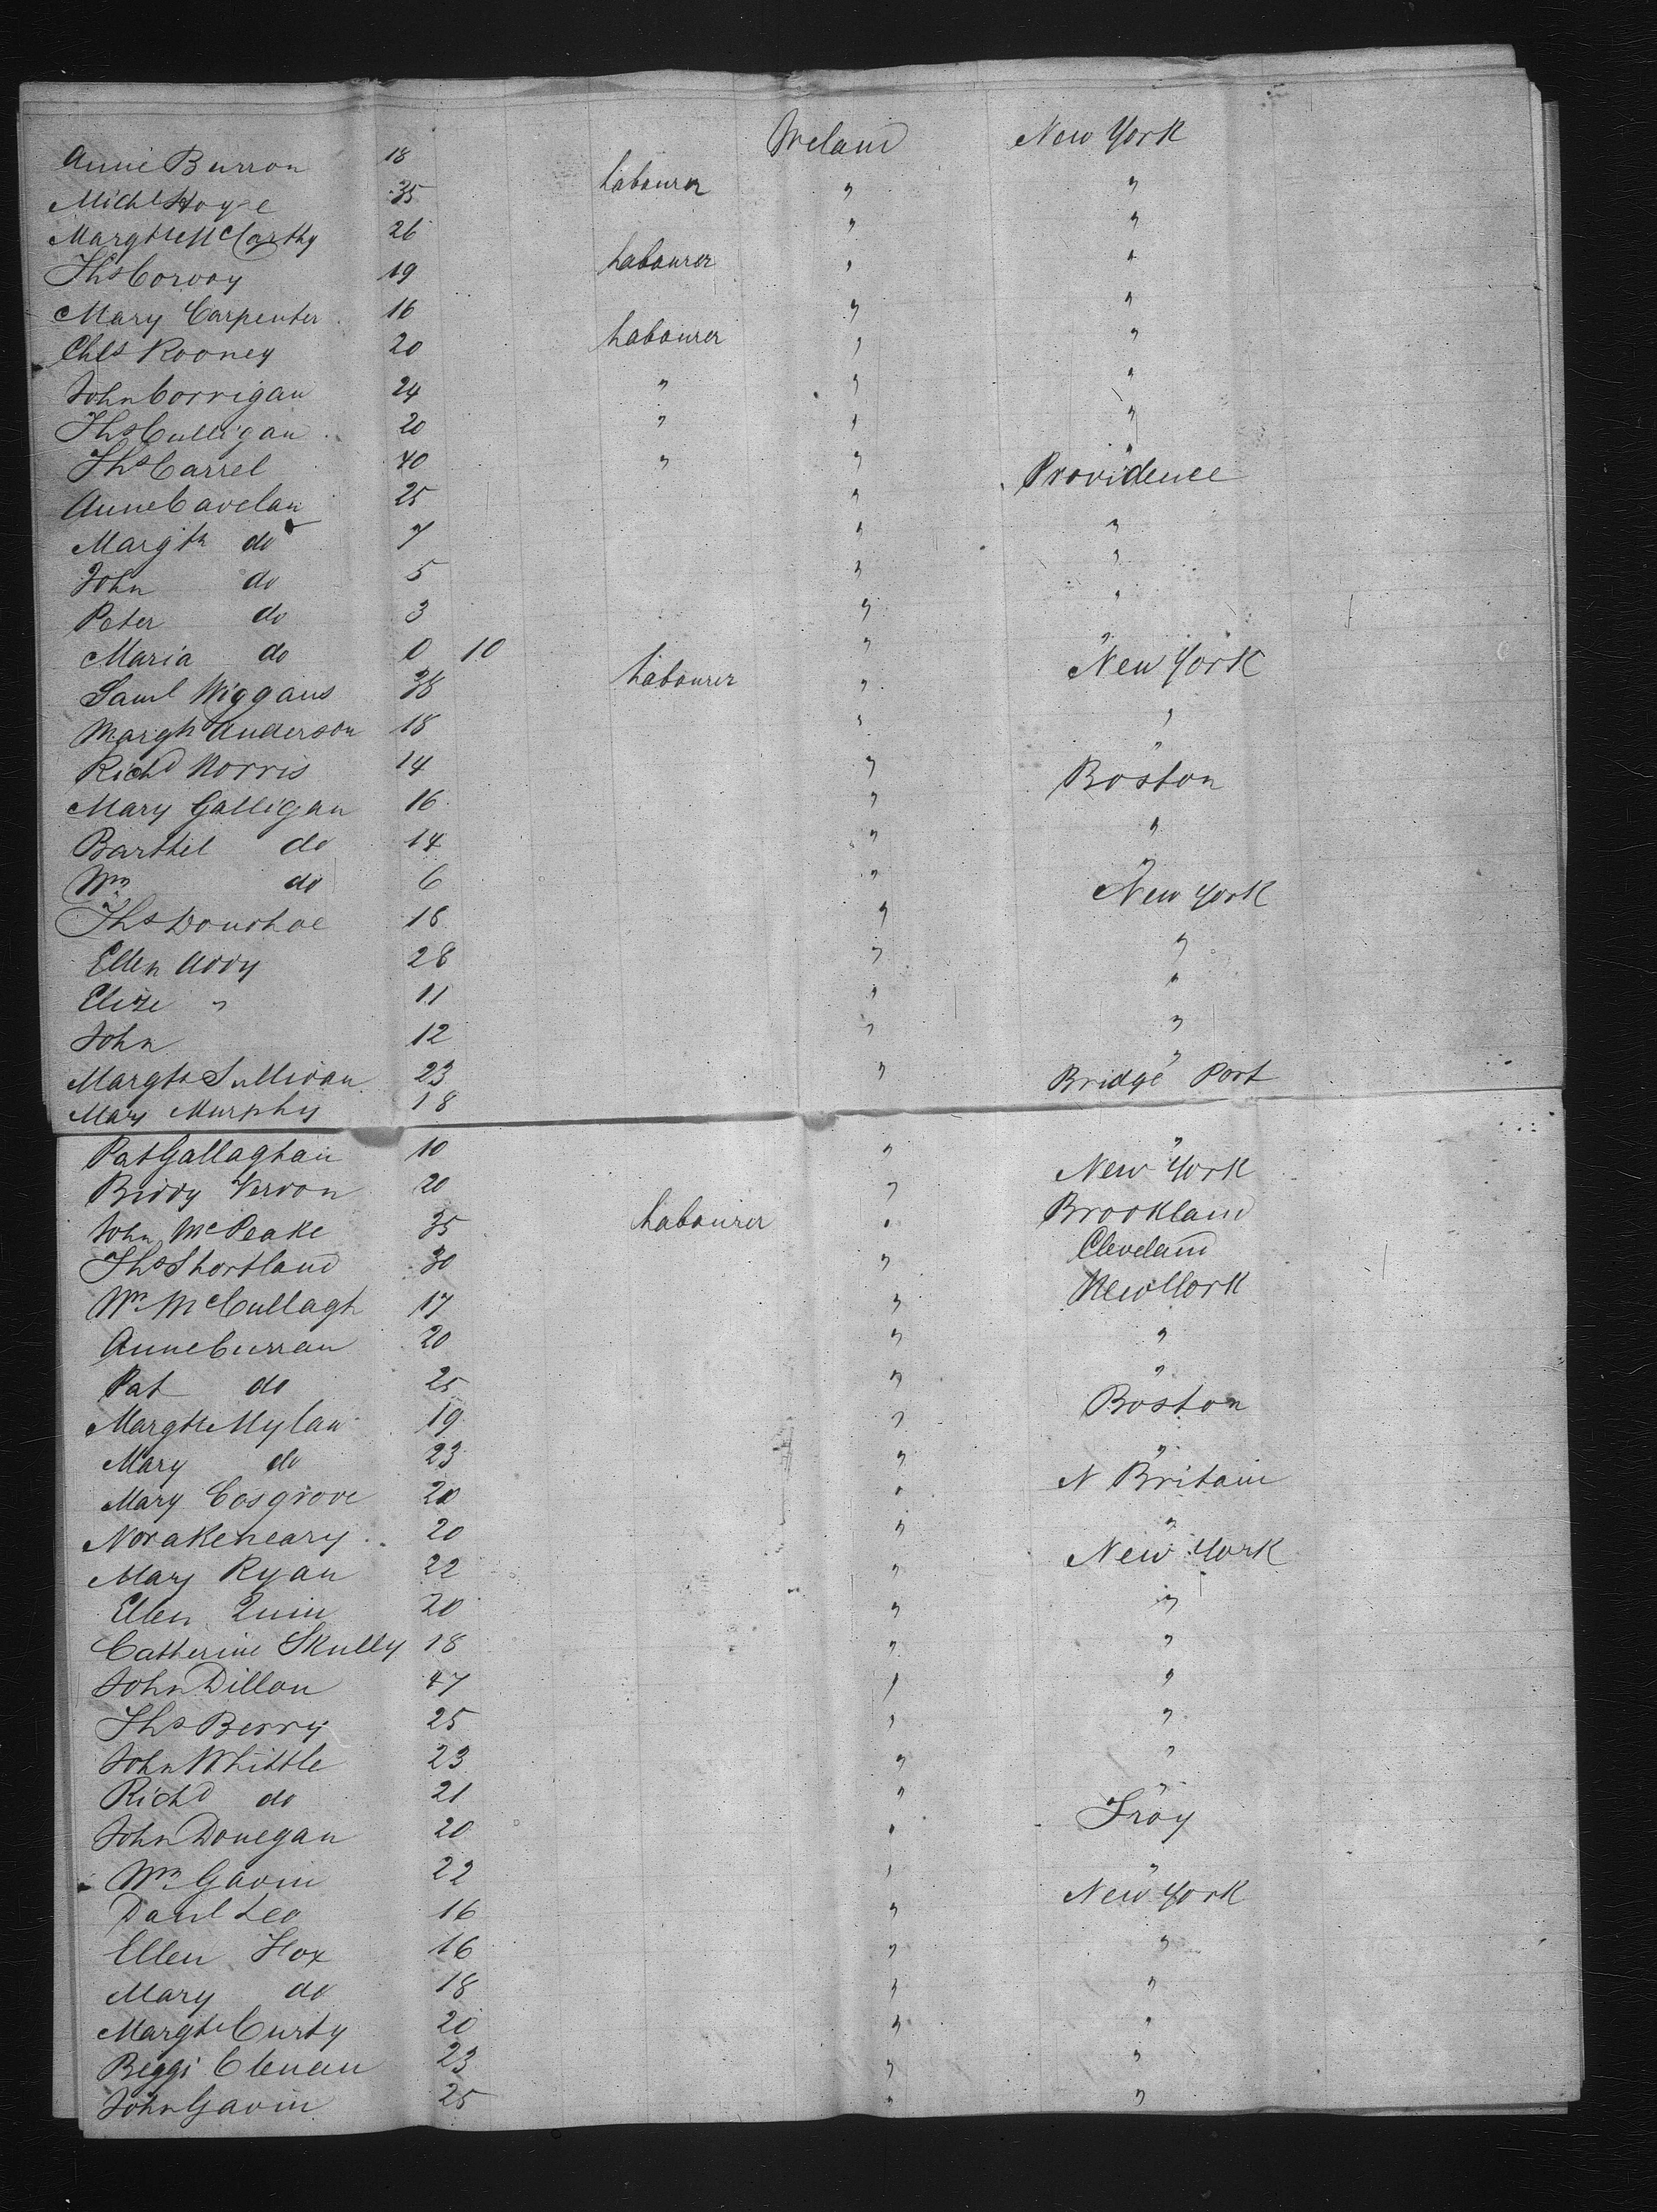 Annie Burron 18 Ireland New York
Michl Hoyse 35 Labourer " "
Margth McCarthy 26 " "
Ths Corvoy 19 Labourer " "
Mary Carpenter 16 " "
Chls Rooney 20 Labourer " "
John Corrigan 24 " " "
Ths Culligan 20 " " "
Ths Carrel 40 " " "
Anne Cavelan 25 " Providence
Margth do 7 " "
John do 5 " "
Peter do 3 " "
Maria do 0 10 " "
Saml Wiggans 38 Labourer " New York
Margh Anderson 18 " "
Richd Norris 14 " "
Mary Galligan 16 " Boston
Barthel do 14 " "
Wm do 6 " "
Ths Donohoe 18 " New York
Ellen Addy 28 " "
Elize " 11 " "
John 12 " "
Margth Sullivan 23 " "
Mary Murphy 18 Bridge Port
Pat Gallaghan 10 " "
Biddy Verdon 20 " New York
John McPeake 35 Labourer " Brookland
Ths Shortland 30 " Cleveland
Wm McCullagh 17 " New York
Anne Curran 20 " "
Pat do 25 " "
Margth Mylan 19 " Boston
Mary do 23 " "
Mary Cosgrove 20 " N Britain
Nora Keneary 20 " "
Mary Ryan 22 " New York
Ellen Quin 20 " "
Catherine Skully 18 " "
John Dillon 47 " "
Ths Berry 25 " "
John Whittle 23 " "
Richd do 21 " "
John Donegan 20 " Troy
Wm Gavin 22 " "
Danl Leo 16 " New York
Ellen Fox 16 " "
Mary do 18 " "
Margth Curty 20 " "
Beggi Clenan 23 " "
John Gavin 25 " "